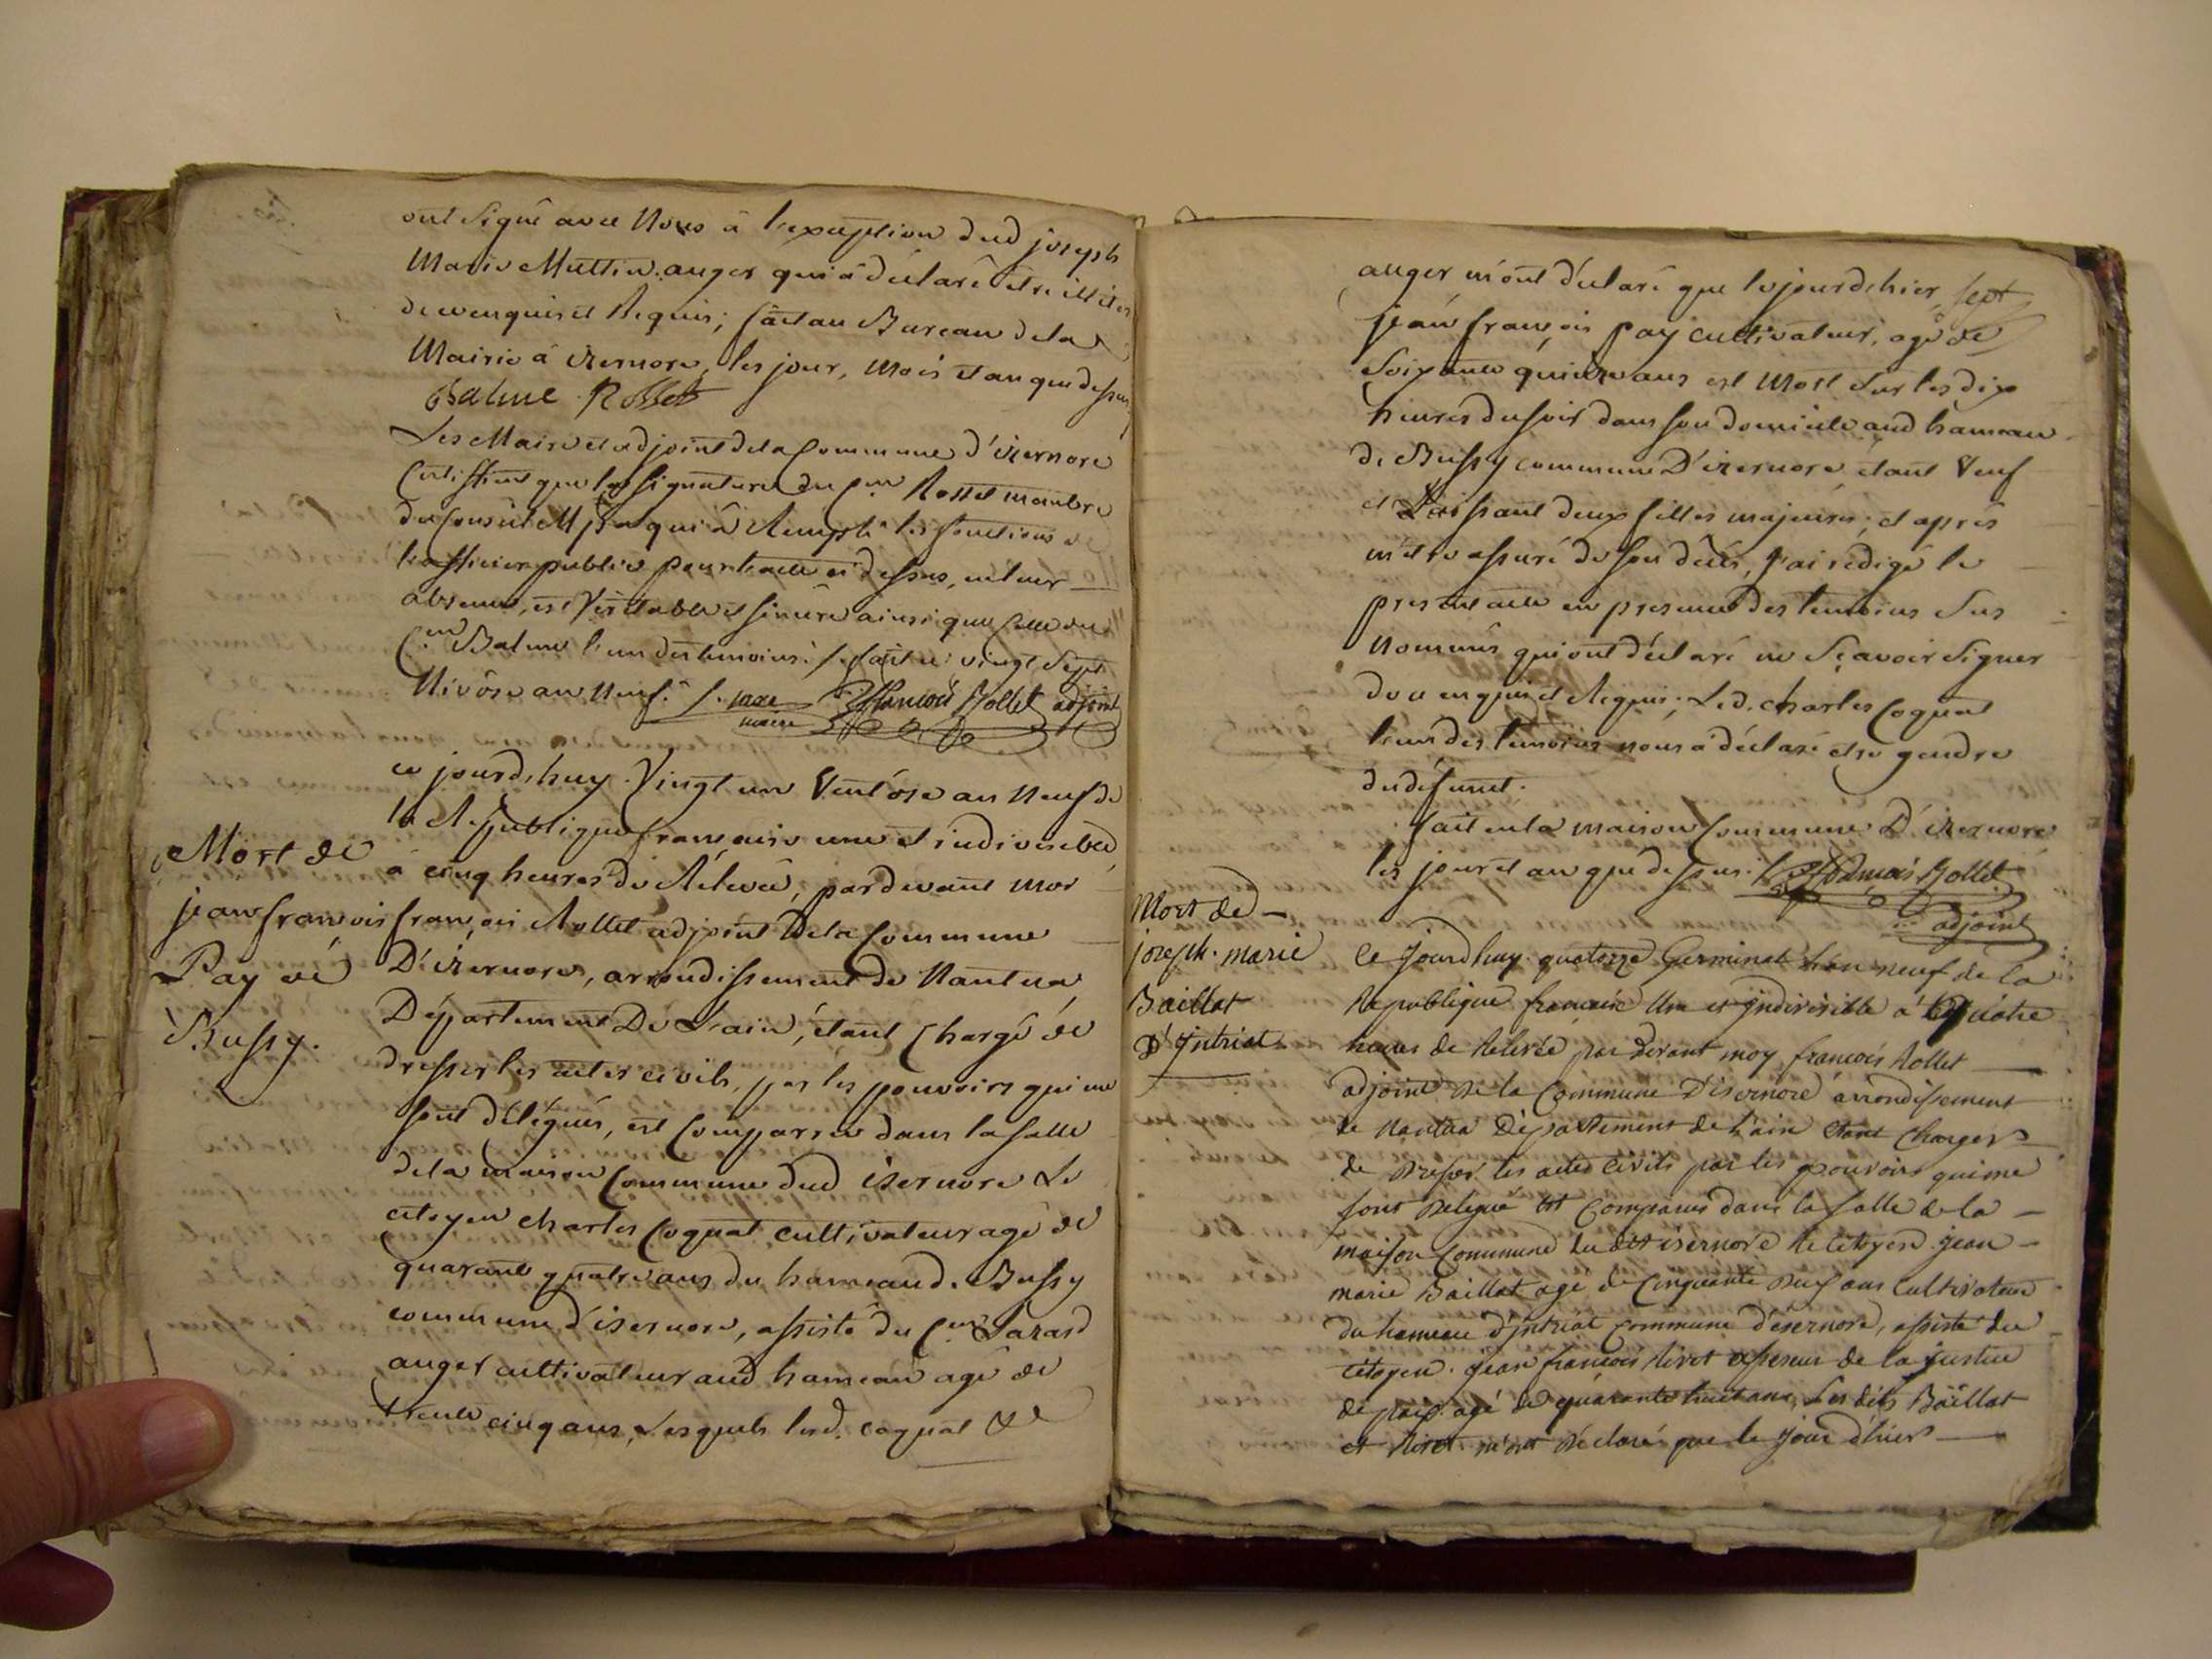 ont signé avec Nous à l'exception dud joseph
Marie Muttin. auger qui a déclaré être illiteré
de ce enquis et Requis; fait au Bureau de la
Mairie à izernore, les jour, Mois et an que dessus
Balme Rosset
Les Maire et adjoint de la Commune d'izernore
Certiffient que la signature du Cen Rosset membre
du Conseil Mpal qui à Rempli les fonctions de
l'officier public pour l'acte ci dessus, en leur
absence, est Véritable et sincere ainsi que celle du
Cen Balme l'un des temoins. fait ce vingt sept
Nivôse an Neuf. maire françois Rollet adjoint
maire
ce jourd'huy Vingt un Ventôse an Neuf de
la République française une et indivisible
Mort de
jean françois
Pay de
Bussy.
à cinq heures de Relevée, pardevant moi
françois Rollet adjoint De la Commune
D'izernore, arrondissement de Nantua
Département De L'ain, étant Chargé de
dresser les actes civils, par les pouvoirs qui me
sont délégués, est Comparu dans la salle
de la maison Commune dud izernore Le
citoyen charles Coquat cultivateur agé de
quarante quatre ans du hameau de Bussy
commune d'isernore, assisté du Cen Lazard
auger cultivateur aud hameau agé de
trente cinq ans, Lesquels lesd. coquat et
auger m'ont déclaré que le jour d'hier, sept
jean françois pay cultivateur, agé de
soixante quinze ans est Mort sur les dix
heures du soir dans son domicile aud hameau
de Bussy commune D'izernore étant Veuf
et Laissant deux filles majeures; et après
m'etre assuré de son décès, j'ai rédigé le
present acte en presence des temoins sus
nommés qui ont déclaré ne sçavoir signer
de ce enquis et Requis; Led. charles Coquat
l'un des temoins nous a déclaré etre gendre
du défunt.
fait en la maison Commune D'izernore
les jour et an que dessus. françois Rollet
adjoint
Mort de
joseph. marie
Baillat
D'yntriat
Ce jourd'huy quatorze Germinal l'an neuf de la
Republique française Une et yndivisible à quatre
heures de Relevée par devant moy françois Rollet
adjoint De la Commune D'isernore arrondissement
de Nantua Département de L'ain etant Charger
de Dresser les actes civils par les pouvoirs qui me
sont Delegué est Comparus dans la salle de la
maison Commune du dit isernore le citoyen jean
marie Baillat agé de Cinquante neuf ans Cultivateur
du hameau d'yntriat Commune d'isernore, assisté du
citoyen jean françois Nivet assesseur de la justice
de paix agé de quarante huit ans, Les dits Baillat
et Nivet m'ont Déclaré que le jour d'hier